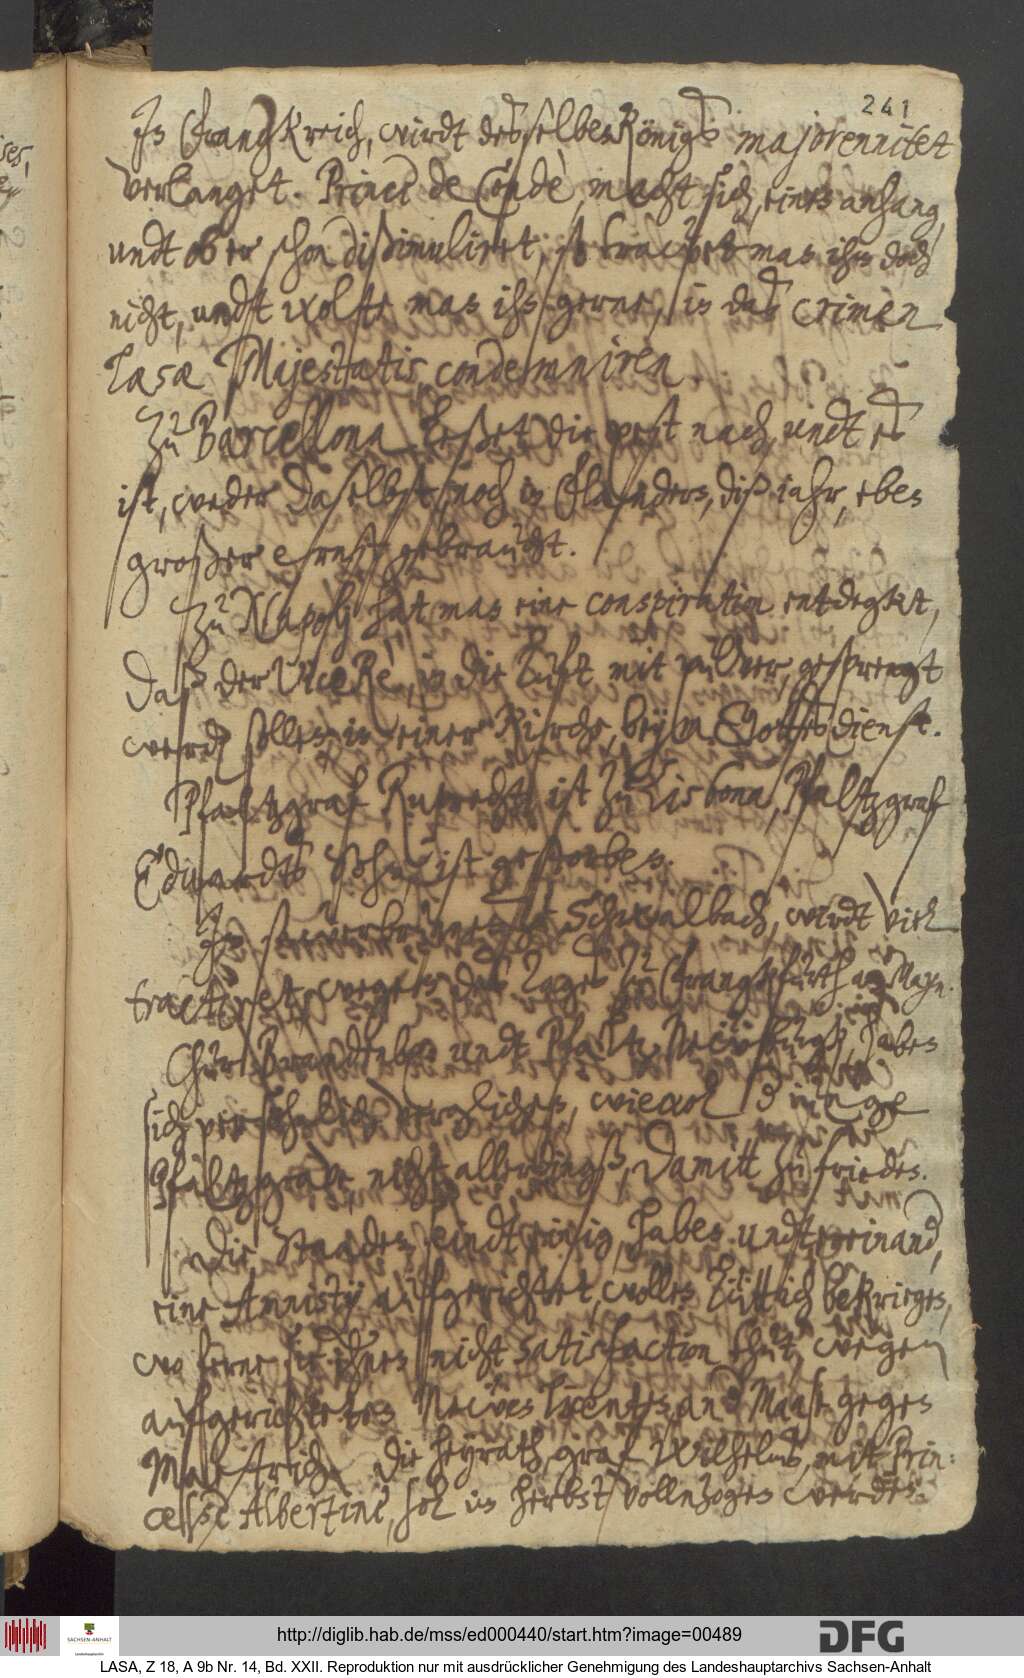 241
In Frangkreich, wirdt desselben Königs majorennitet
verlanget. Prince de Condè, macht sich, einen anhang,
undt ob er schon dißimuliret, so trawet man ihm doch
nicht, undt wolte man ihn gerne, in das crimen
læsæ Majestatis, condemniren.
Zu Barcellona leßet die pest nach, undt es
ist, weder daselbst, noch in Flandern, diß iahr, eben
großer ernst gebraucht.
Zu Napolj hat man eine conspiration entdegkt,
daß der Vice Ré, in die Luft mit pulver, gesprengt
werden sollen, in einer Kirche, beym Gottesdienst.
Pfaltzgraf Ruprecht, ist zu Lisbona, Pfaltzgraf
Edwardts Sohn, ist gestorben.
Im Sawerbrunnen Schwalbach, wirdt viel
tractiret, wegen des Tages zu Frangkfurth am Mayn.
Chur Brandenburg undt Pfaltz Newburgk, haben
sich verglichen, wiewol
Pfaltzgrave nicht allerdings, damitt zu frieden.
Die Staaden seindt einig, haben undtereinander,
eine Amnisty aufgerichtet, wollen Lüttich bekriegen,
wo ferne sie ihnen nicht satisfaction thut, wegen
aufgerichteten Newen licenten, an d Maase gegen
Mastricht. Die heyrath, graf Wilhelms, mit Prin:
cesse Albertine, sol im herbst vollnzogen werden.
http://diglib.hab.de/mss/ed000440/start.htm?image=00489
SACHSEN-ANHALT
Landeshauptarchiv
DFG
LASA, Z 18, A 9b Nr. 14, Bd. XXII. Reproduktion nur mit ausdrücklicher Genehmigung des Landeshauptarchivs Sachsen-Anhalt